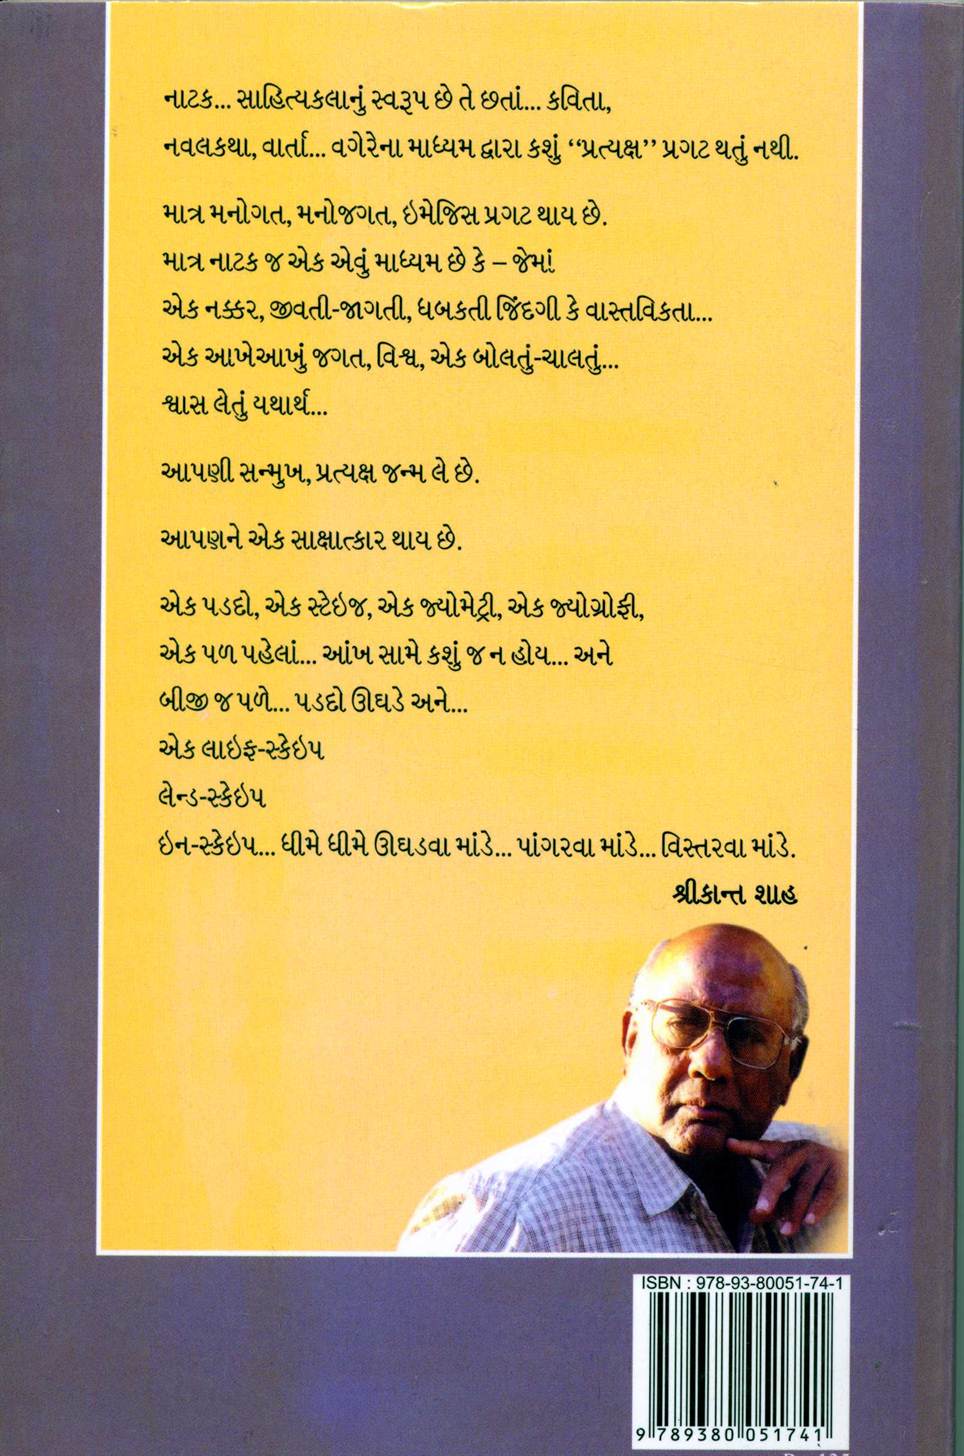 નાટક... સાહિત્યકલાનું સ્વરૂપ છે તે છતાં... કવિતા,
નવલકથા, વાર્તા... વગેરેના માધ્યમ દ્વારા કશું “પ્રત્યક્ષ” પ્રગટ થતું નથી.
માત્ર મનોગત, મનોજગત, ઇમેજિસ પ્રગટ થાય છે.
માત્ર નાટક જ એક એવું માધ્યમ છે કે – જેમાં
એક નક્કર, જીવતી-જાગતી, ધબકતી જિંદગી કે વાસ્તવિકતા...
એક આખેઆખું જગત, વિશ્વ, એક બોલતું-ચાલતું...
શ્વાસ લેતું યથાર્થ...
આપણી સન્મુખ, પ્રત્યક્ષ જન્મ લે છે.
આપણને એક સાક્ષાત્કાર થાય છે.
એક પડદો, એક સ્ટેઇજ, એક જ્યોમેટ્રી, એક જ્યોગ્રોફી,
એક પળ પહેલાં... આંખ સામે કશું જ ન હોય... અને
બીજી જ પળે... પડદો ઊઘડે અને...
એક લાઇફ-સ્કેઇપ
લેન્ડ-સ્કેઇપ
ઇન-સ્કેઇપ... ધીમે ધીમે ઊઘડવા માંડે... પાંગરવા માંડે... વિસ્તરવા માંડે.
શ્રીકાન્ત શાહ
ISBN : 978-93-80051-74-1
9 789380 051741